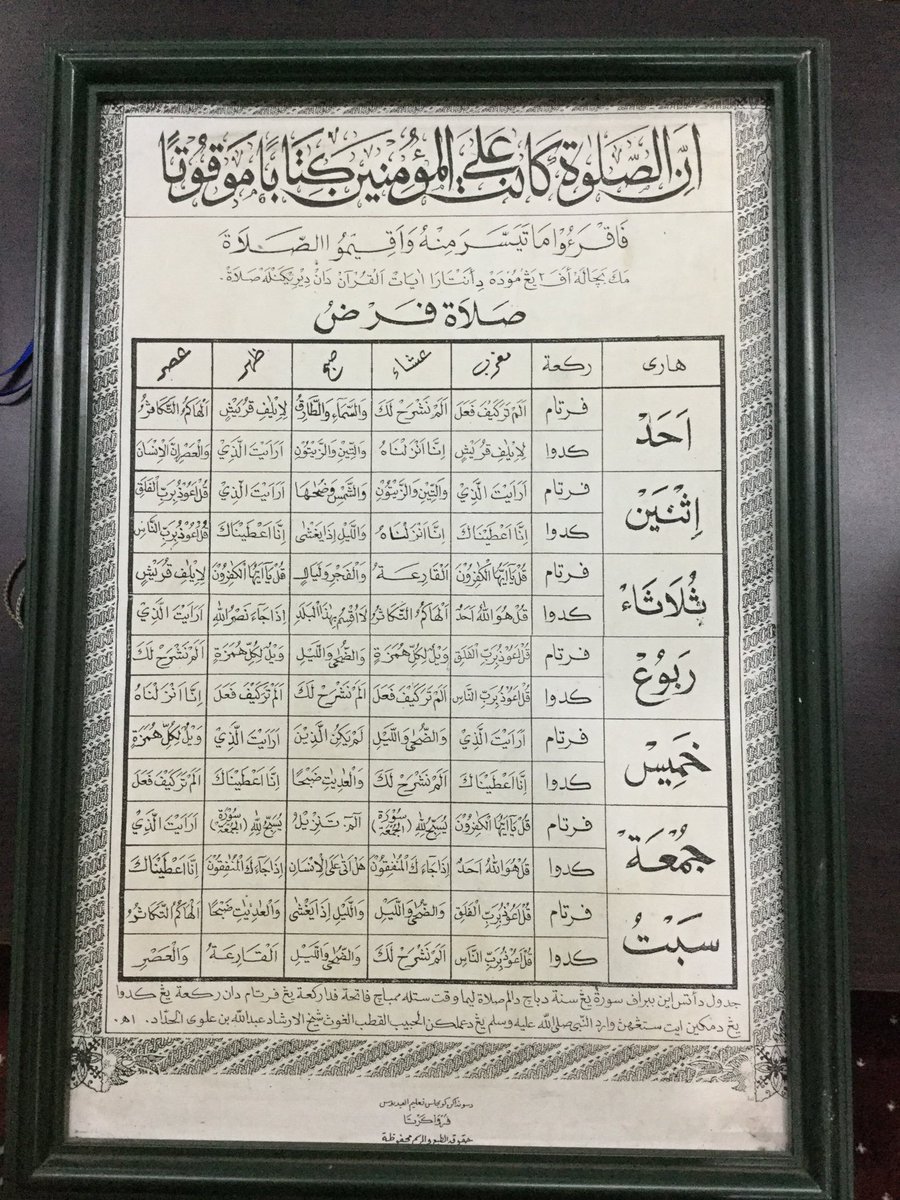 اِنَّ الصَّلٰوةَ كَانَتْ عَلَى الْمُؤْمِنِيْنَ كِتَابًا مَوْقُوْتًا
فَاقْرَءُوْا مَا تَيَسَّرَ مِنْهُ وَاَقِيْمُوا الصَّلَاةَ
مك بچاله اف٢ يڠ موده دانتارا اية٢ القرآن دان ديريكنله صلاة.
صَلَاة فَرْضُ
هاري ركعة مغرب عشاء صبح ظهر عصر
اَحَدْ
فرتام اَلَمْ تَرَكَيْفَ فَعَلَ اَلَمْ نَشْرَحْ لَكَ وَالسَّمَاءِ وَالطَّارِقِ لِاِيلٰفِ قُرَيْشٍ اَلْهٰاكُمُ التَّكَاثُرُ
كدوا لِاِيلٰفِ قُرَيْشٍ اِنَّا اَنْزَلْنَاهُ وَالتِّيْنِ وَالزَّيْتُوْنِ اَرَاَيْتَ الَّذِيْ وَالْعَصْرِ اِنَّ الْاِنْسَانَ
اِثْنَيْن
فرتام اَرَاَيْتَ الَّذِيْ وَالتِّيْنِ وَالزَّيْتُوْنِ وَالشَّمْسِ وَضُحٰهَا اَرَاَيْتَ الَّذِيْ قُلْ اَعُوْذُ بِرَبِّ الْفَلَقِ
كدوا اِنَّا اَعْطَيْنَاكَ اِنَّا اَنْزَلْنَاهُ وَاللَّيْلِ اِذَا يَغْشٰى اِنَّا اَعْطَيْنَاكَ قُلْ اَعُوْذُ بِرَبِّ النَّاسِ
ثُلَاثَاءْ
فرتام قُلْ يَااَيُّهَا الْكٰفِرُوْنَ اَلْقَارِعَةُ وَالْفَجْرِ وَلَيَالٍ قُلْ يَااَيُّهَا الْكٰفِرُوْنَ لِاِيلٰفِ قُرَيْشٍ
كدوا قُلْ هُوَ اللهُ اَحَدٌ اَلْهٰاكُمُ التَّكَاثُرُ لَا اُقْسِمُ بِهٰذَا الْبَلَدِ اِذَا جَاءَ نَصْرُ اللهِ اَرَاَيْتَ الَّذِيْ
رَبُوْعْ
فرتام قُلْ اَعُوْذُ بِرَبِّ الْفَلَقِ وَيْلٌ لِكُلِّ هُمَزَةٍ وَالضُّحٰى وَاللَّيْلِ وَيْلٌ لِكُلِّ هُمَزَةٍ اَلَمْ نَشْرَحْ لَكَ
كدوا قُلْ اَعُوْذُ بِرَبِّ النَّاسِ اَلَمْ تَرَكَيْفَ فَعَلَ اَلَمْ نَشْرَحْ لَكَ اَلَمْ تَرَكَيْفَ فَعَلَ اِنَّا اَنْزَلْنَاهُ
خَمِيْسْ
فرتام اَرَاَيْتَ الَّذِيْ وَالضُّحٰى وَاللَّيْلِ لَمْ يَكُنِ الَّذِيْنَ اَرَاَيْتَ الَّذِيْ وَيْلٌ لِكُلِّ هُمَزَةٍ
كدوا اِنَّا اَعْطَيْنَاكَ اَلَمْ نَشْرَحْ لَكَ وَالْعٰدِيٰتِ ضَبْحًا اِنَّا اَعْطَيْنَاكَ اَلَمْ تَرَكَيْفَ فَعَلَ
جُمْعَةْ
فرتام قُلْ يَااَيُّهَا الْكٰفِرُوْنَ يُسَبِّحُ لِلّٰهِ (سُوْرَةُ الْجُمُعَةْ) الٓمٓ تَنْزِيْلُ يُسَبِّحُ لِلّٰهِ (سُوْرَةُ الْجُمُعَةْ) اَرَاَيْتَ الَّذِيْ
كدوا قُلْ هُوَ اللهُ اَحَدٌ اِذَا جَاءَكَ الْمُنٰفِقُوْنَ هَلْ اَتٰى عَلَى الْاِنْسَانِ اِذَا جَاءَكَ الْمُنٰفِقُوْنَ اِنَّا اَعْطَيْنَاكَ
سَبْتُ
فرتام قُلْ اَعُوْذُ بِرَبِّ الْفَلَقِ وَالضُّحٰى وَاللَّيْلِ وَاللَّيْلِ اِذَا يَغْشٰى وَالْعٰدِيٰتِ ضَبْحًا اَلْهٰاكُمُ التَّكَاثُرُ
كدوا قُلْ اَعُوْذُ بِرَبِّ النَّاسِ اَلَمْ نَشْرَحْ لَكَ وَالضُّحٰى وَاللَّيْلِ اَلْقَارِعَةُ وَالْعَصْرِ
جدول دأتس اين ببراف سورة يڠ سنة دباچ دالم صلاة ليما وقت ستله ممباچ فاتحة فدا ركعة يڠ فرتام دان ركعة يڠ كدوا
يڠ دمكين ايت ستڠهن وارد النبي صلى الله عليه وسلم يڠ دعملكن الحبيب القطب الغوث شيخ الارشاد عبدالله بن علوي الحدّاد. اه.
مجلس تعليم العيدروس
فُرْوَاكَرْتَا
حقوق الطبع والرسم محفوظة